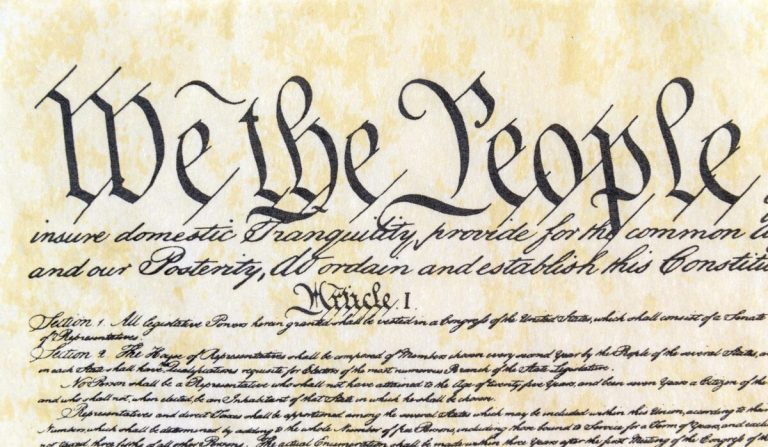 We the People
insure domestic Tranquility, provide for the common
and our Posterity, do ordain and establish this Constitu
Article. I.
Section 1. All legislative Powers herein granted shall be vested in a Congress of the United States, which shall consist of a Senate
of Representatives.
Section 2. The House of Representatives shall be composed of Members chosen every second Year by the People of the several States, a
in each State shall have the Qualifications requisite for Electors of the most numerous Branch of the State Legislature.
No Person shall be a Representative who shall not have attained to the Age of twenty five Years, and been seven Years a Citizen of the
and who shall not, when elected, be an Inhabitant of that State in which he shall be chosen.
Representatives and direct Taxes shall be apportioned among the several States which may be included within this Union, according to their
Numbers, which shall be determined by adding to the whole Number of free Persons, including those bound to Service for a Term of Years, and excl
not taxed, three fifths of all other Persons. The actual Enumeration shall be made within three Years after the first Meeting of the Congress of